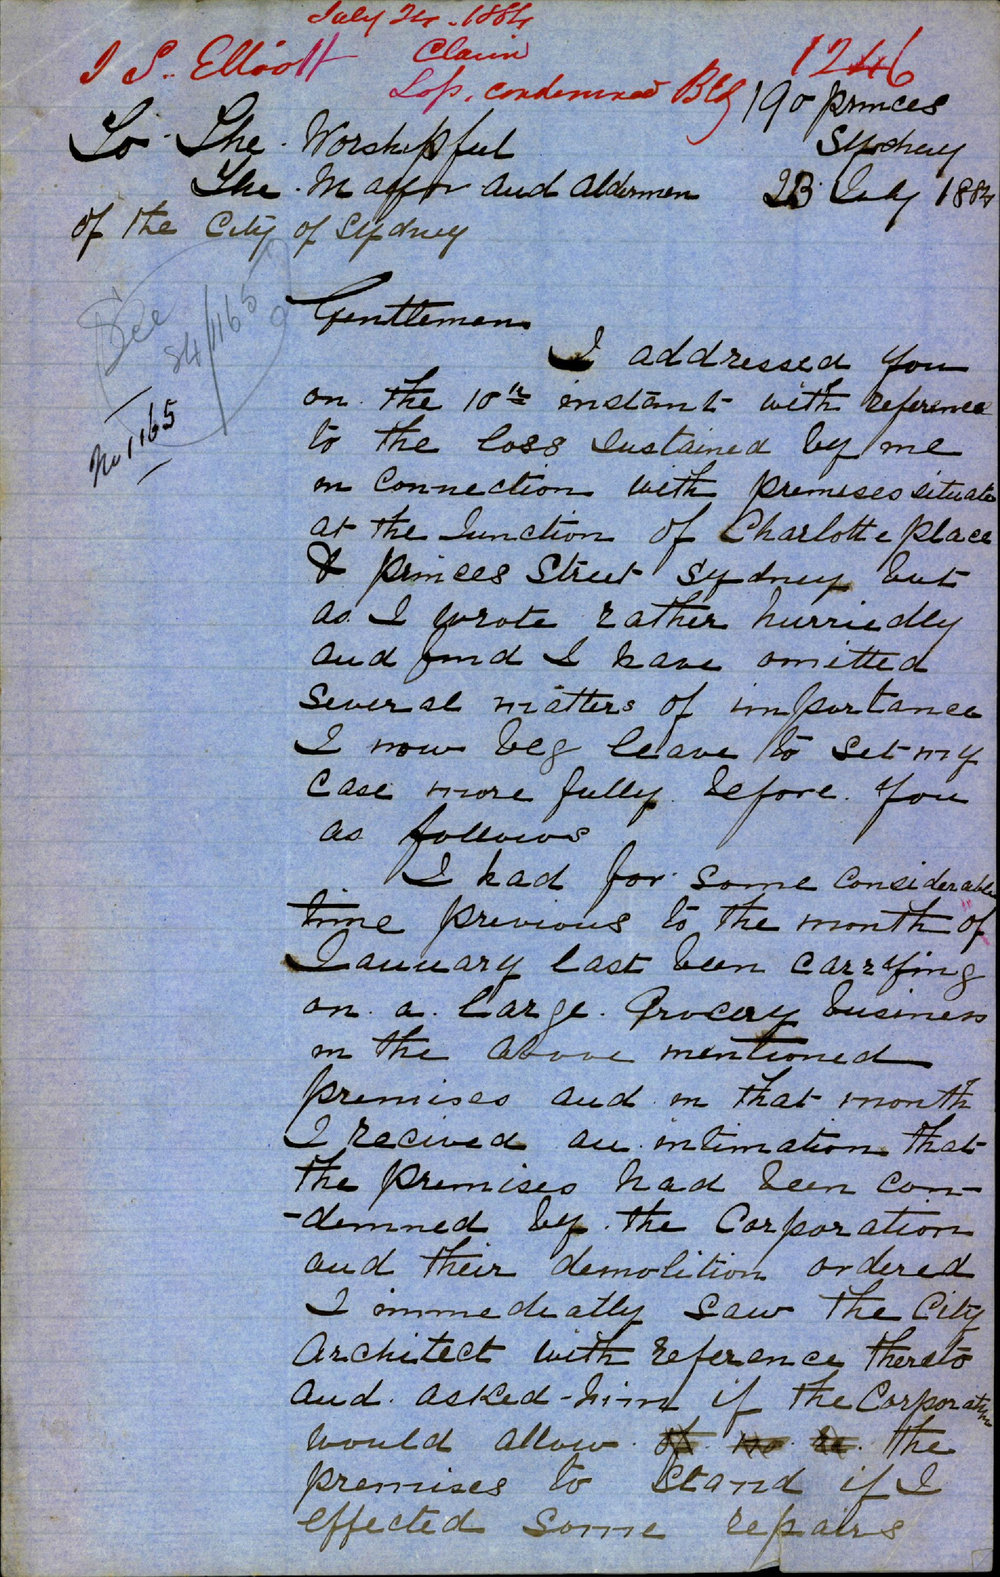 July 24. 1884
J S. Elliott
Claim
1246
Loss, condemned Bldg
190 princes
To The Worshipful
Sydney
The Mayor and aldermen
23 July 1884
of the City of Sydney
See
84/1165
No 1165
Gentlemen
I addressed you
on the 10th instant with reference
to the loss sustained by me
in connection with premises situate
at the Junction of Charlotte place
& princes Street Sydney but
as I wrote rather hurriedly
and find I have omitted
several matters of importance
I now beg leave to set my
case more fully before you
as follows
I had for some considerable
time previous to the month of
January last been carrying
on a large Grocery business
in the above mentioned
premises and in that month
I recived an intimation that
the premises had been con-
-demned by the Corporation
and their demolition ordered
I immediatly saw the City
Architect with reference thereto
and asked him if the Corporation
would allow the
premises to stand if I
effected some repairs